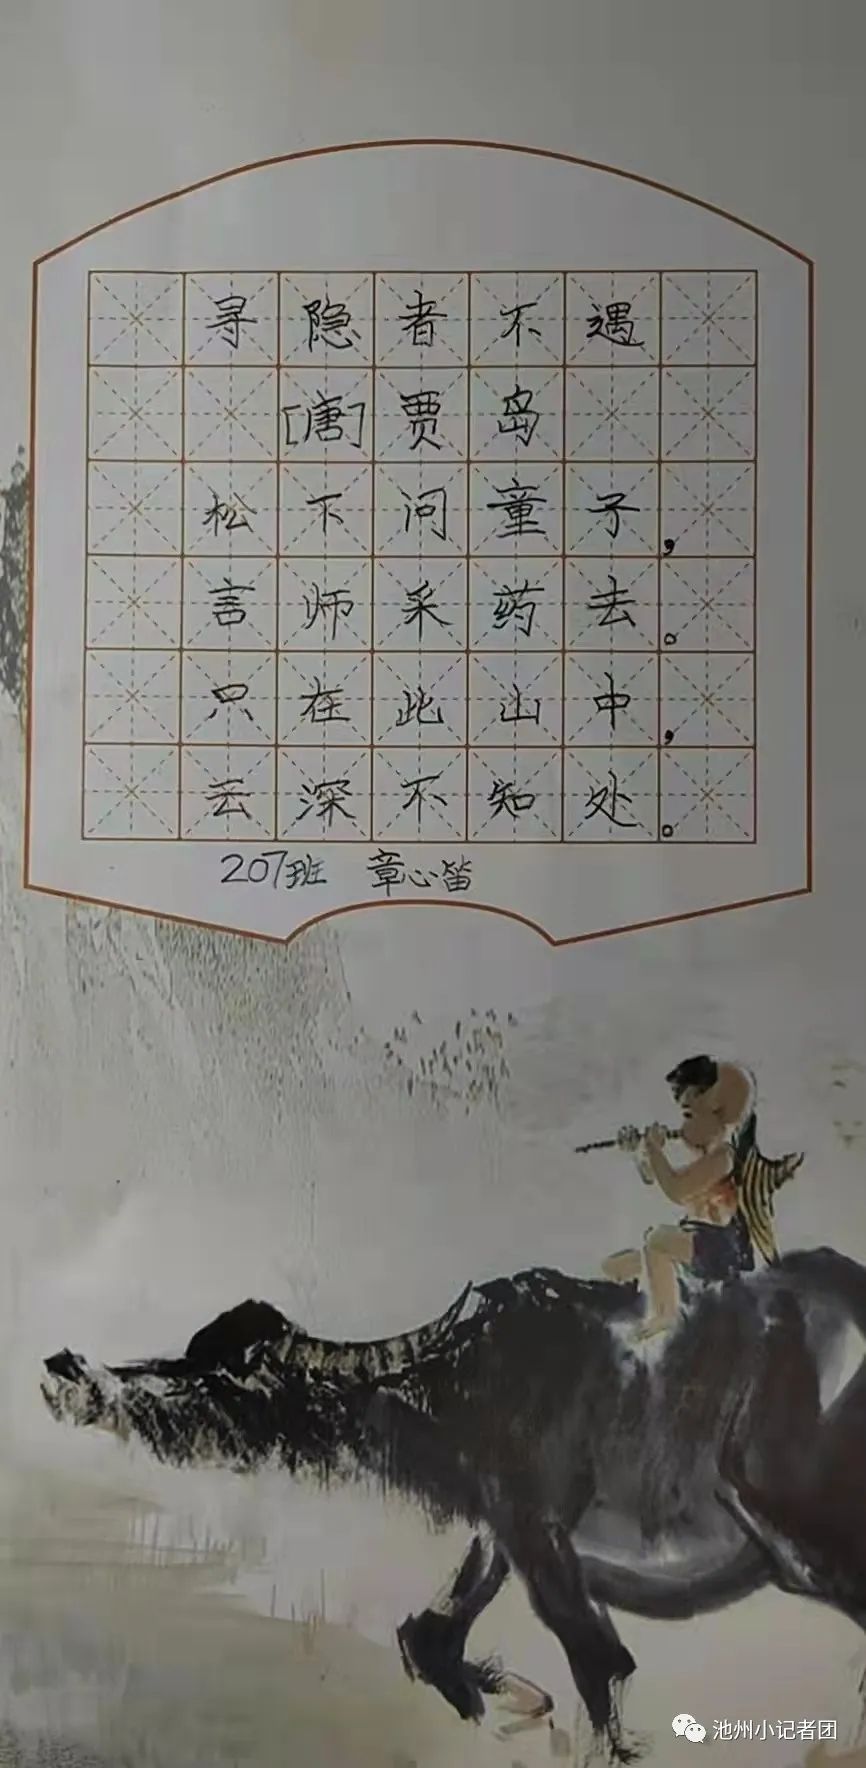 寻隐者不遇
[唐]贾岛
松下问童子，
言师采药去。
只在此山中，
云深不知处。
207班 章心笛
池州小记者团